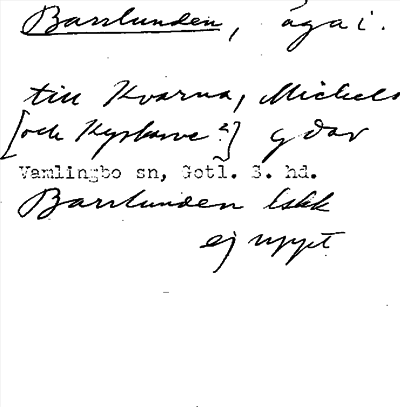 Barrlunden, äga i.
till Kvarna, Michels
[och Kyrkuve?] gdar
Vamlingbo sn, Gotl. S. hd.
Barrlunden
ej uppt